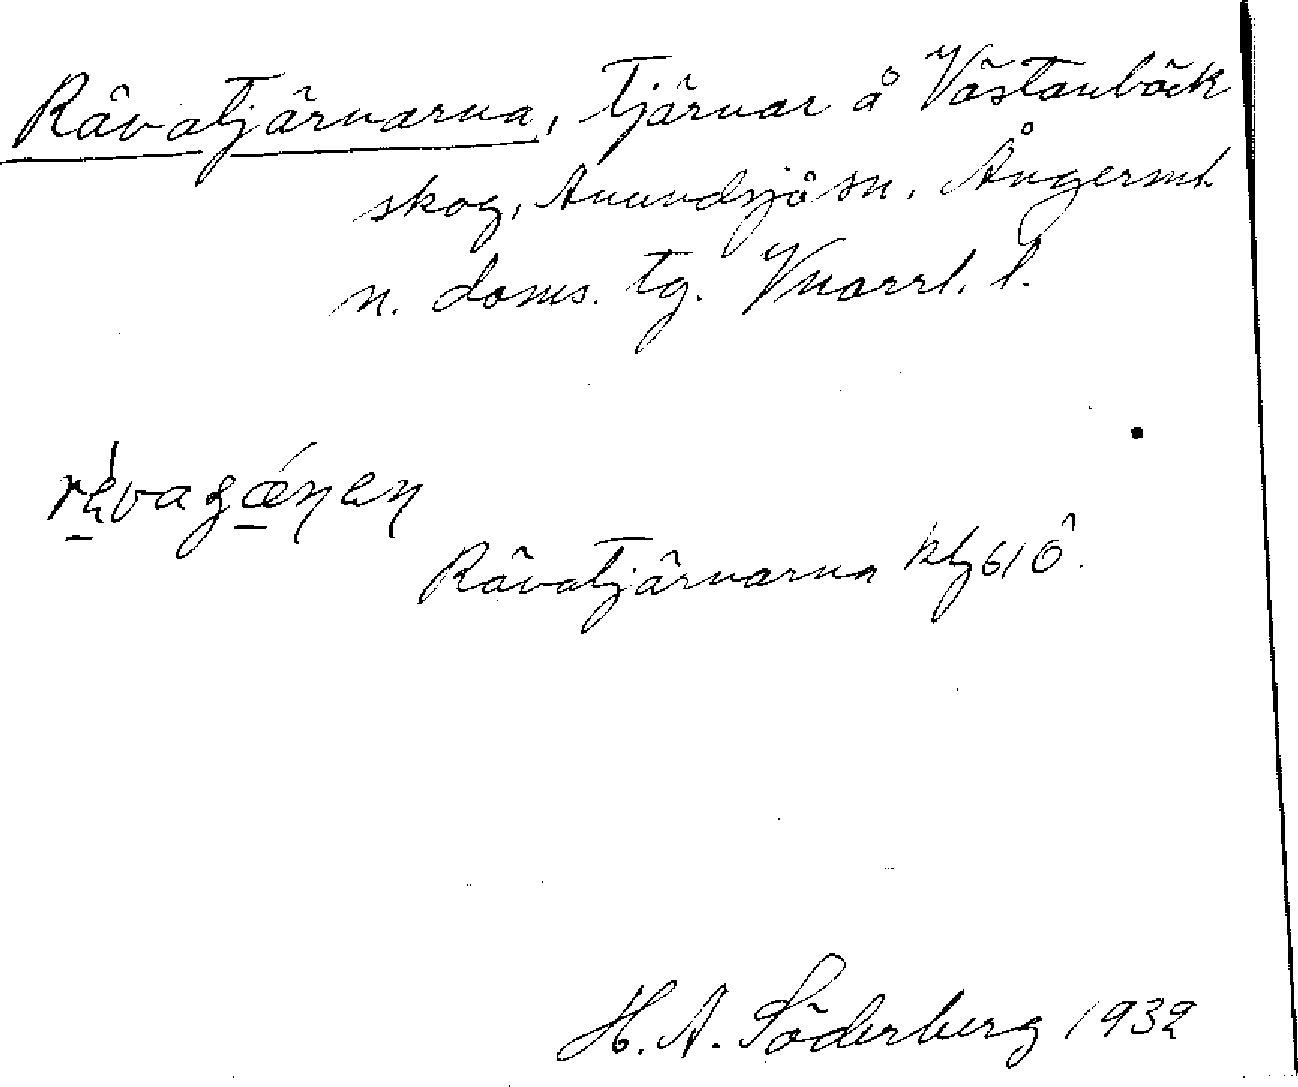 Råvatjärnarna, tjärnar å Västanbäck
skog, Anundsjö sn. Ångerml.
n. doms. tg. Vnorrl. l.
Råvatjärnarna
H. A. Söderberg 1932